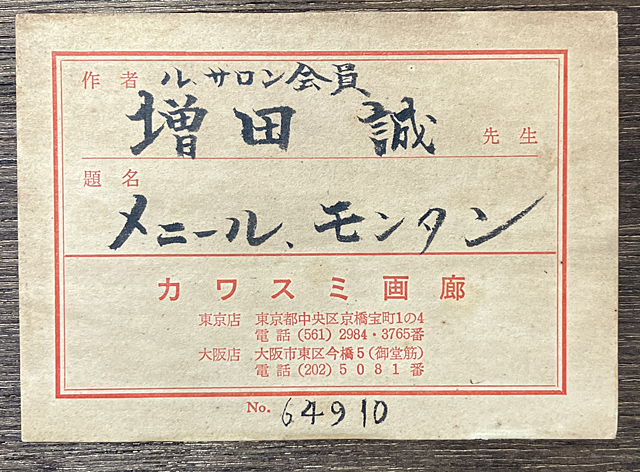 作者 ル、サロン会員
増田 誠 先生
題名
メニール、モンタン
カワスミ画廊
東京店 東京都中央区京橋宝町1の4
電話 (561) 2984・3765番
大阪店 大阪市東区今橋5(御堂筋)
電話 (202) 5081番
No. 64910